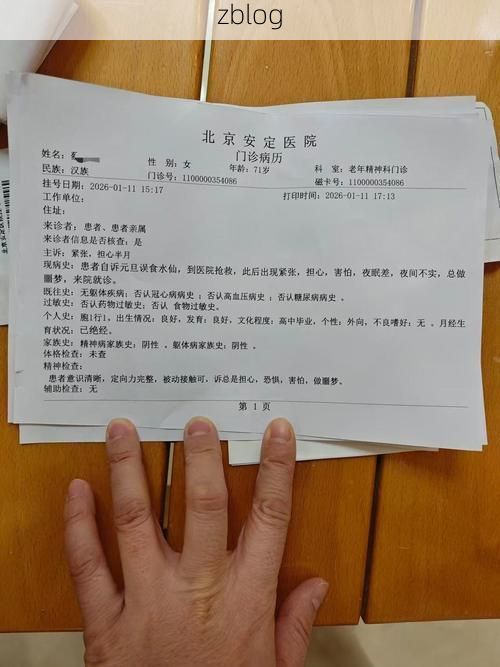 zblog
北京安定医院
门诊病历
姓名：
性 别：女
年龄：71岁
科 室：老年精神科门诊
民族：汉族
门诊号：1100000354086
磁卡号：1100000354086
挂号日期：2026-01-11 15:17
打印时间：2026-01-11 17:13
工作单位：
住址：
来诊者：患者、患者亲属
来诊者信息是否核查：是
主诉：紧张，担心半月
现病史：患者自诉元旦误食水仙，到医院抢救，此后出现紧张，担心，害怕，夜眠差，夜间不实，总做
噩梦，来院就诊。
既往史：无躯体疾病；否认冠心病病史 ；否认高血压病史 ；否认糖尿病病史 。
过敏史：否认药物过敏史；否认 食物过敏史。
个人史：胞1行1，出生情况：良好，发育：良好，文化程度：高中毕业，个性：外向，不良嗜好：无 。月经生
育状况：已绝经。
家族史：精神病家族史：阴性 。躯体病家族史：阴性 。
体格检查：未查
精神检查：
患者意识清晰，定向力完整，被动接触可，诉总是担心，恐惧，害怕，做噩梦。
辅助检查：无
第 1 页